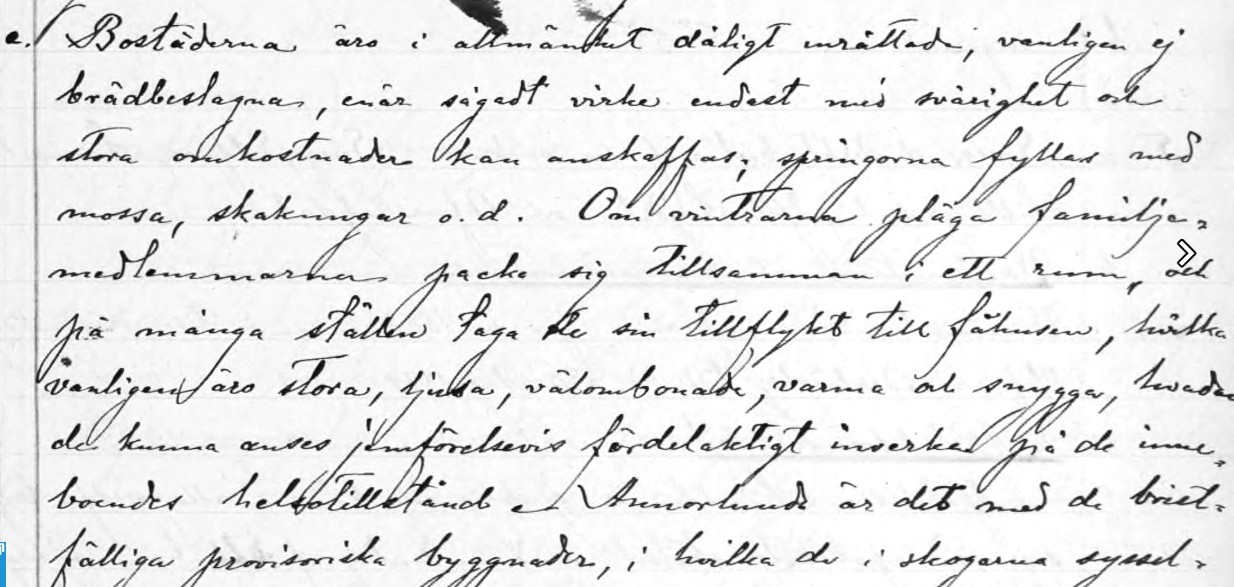 e. Bostäderna äro i allmänhet dåligt inrättade, vanligen ej
brädbeslagna, enär sågadt virke endast med svårighet och
stora omkostnader kan anskaffas; springorna fyllas med
mossa, skakningar o. d. Om vintrarna pläga familje-
medlemmarna packa sig tillsamman i ett rum, och
på många ställen taga de sin tillflykt till fähusen, hvilka
vanligen äro stora, ljusa, välombonade, varma och snygga, hvadan
de kunna anses jemförelsevis fördelaktigt inverka på de inne-
boendes helsotillstånd. Annorlunda är det med de brist-
fälliga provisoriska byggnader, i hvilka de i skogarna syssel-